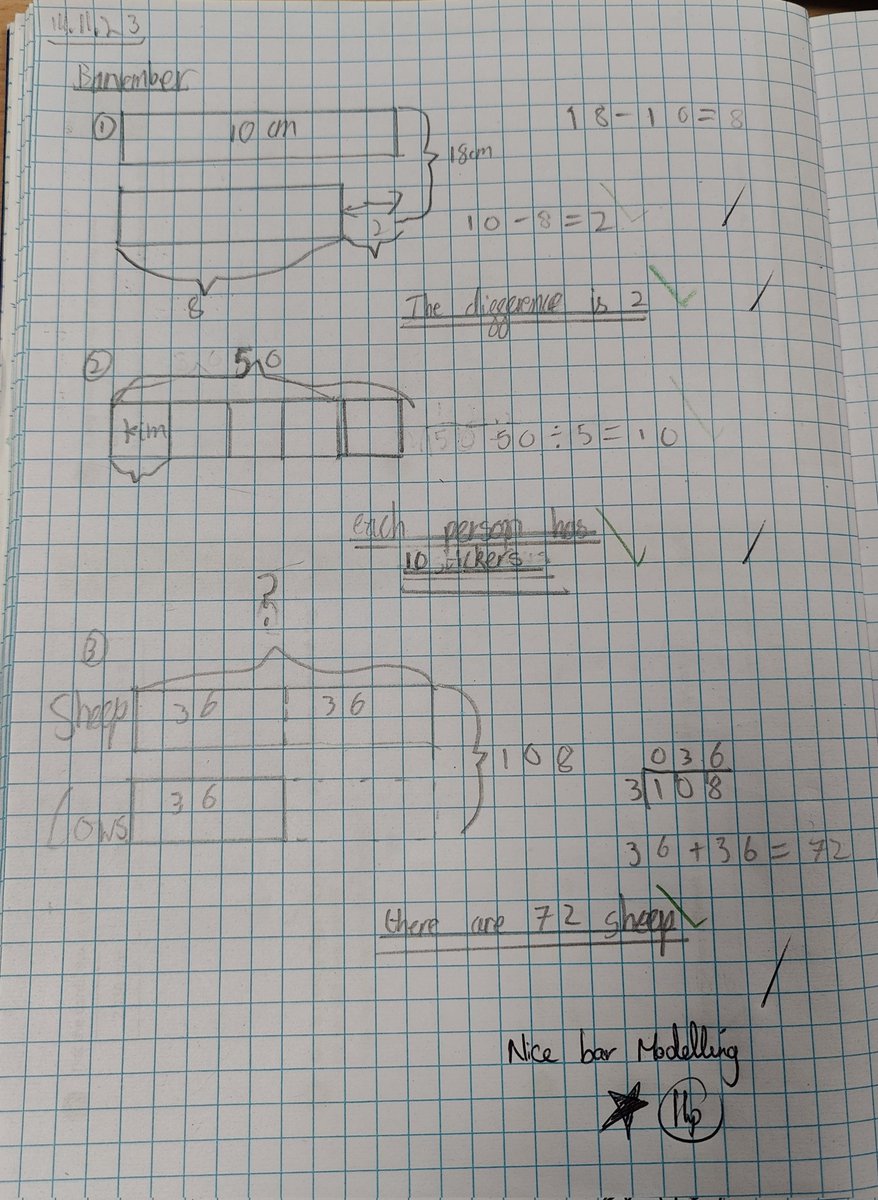 14.11.23
Barvember
① 10 cm 18-10=8
18cm
2 10-8=2
8
The difference is 2
② 50
50÷5=10
each person has
10 stickers
?
③
Sheep 36 36
108 036
Cows 36 3 108
36+36=72
there are 72 sheep
Nice bar Modelling
1hp